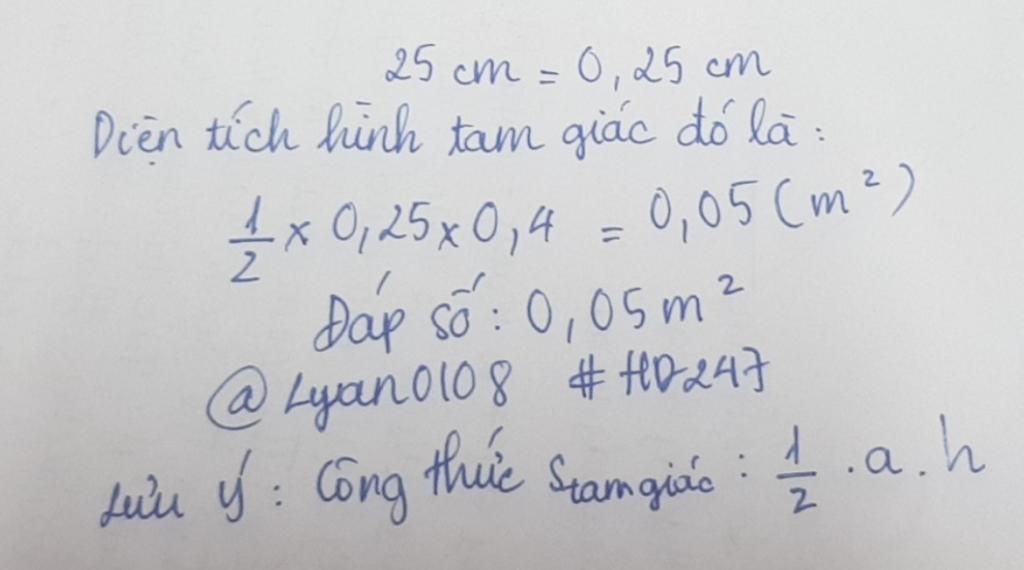 25 cm = 0,25 cm
Diện tích hình tam giác đó là :
1/2 x 0,25 x 0,4 = 0,05 (m²)
Đáp số : 0,05 m²
@Lyan0108 #HD247
Lưu ý : Công thức Stamgiác : 1/2 . a . h